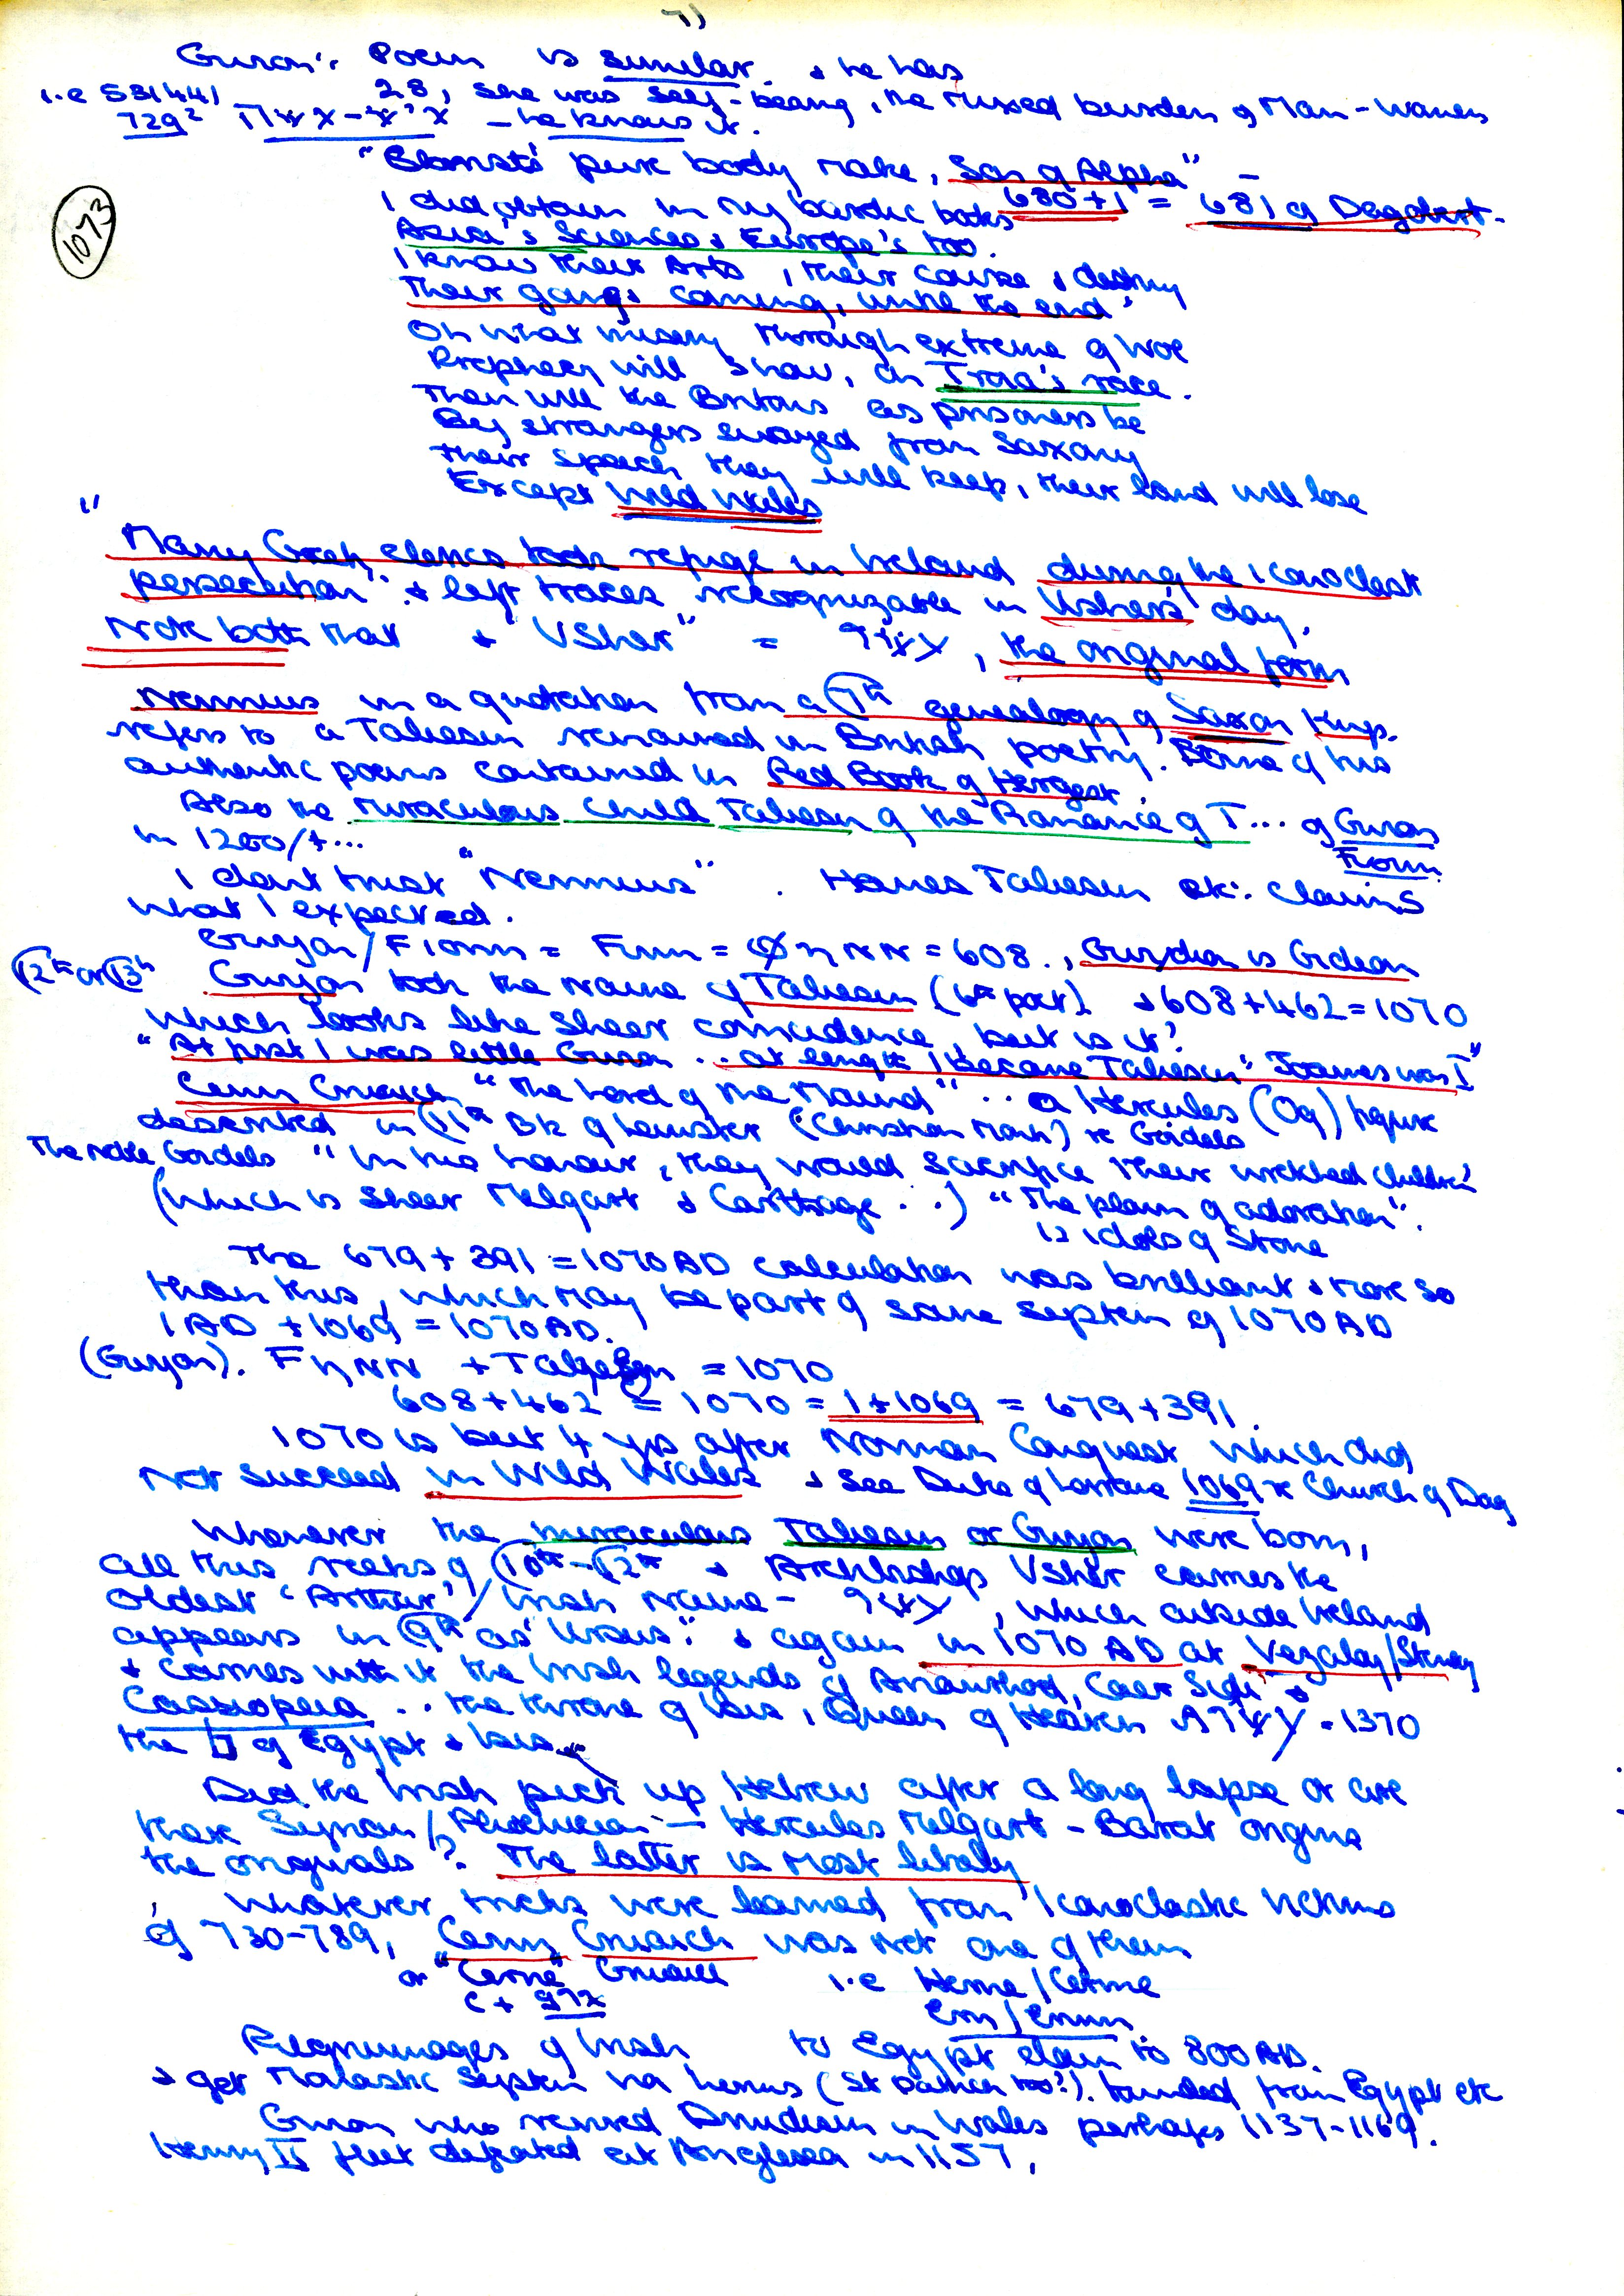 7)
Gwion's Poem is similar. & he has
i.e 531441 28, she was self-bearing, the mixed burden of Man-woman
729² - he knows it.
" pure body make, Son of Alpha" -
1073
I did obtain in my bardic books 680+1 = 681 of Dagobert.
Asia's Sciences & Europe's too.
I know their Arts, their course & destiny
Their going & coming, until the end"
Oh what misery through extreme of woe
Prophecy will show, on Troia's race.
Then will the Britons as prisoners be
By strangers swayed from Saxony
Their speech they will keep, their land will lose
Except Wild Wales
"
Many Greek clerics took refuge in Ireland during the iconoclast
persecution". & left traces recognizable in Usher's day,
Note both that & "Usher" = , the original form
Nennius in a quotation from a 7th genealogy of Saxon Kings.
refers to a Taliesin renowned in British poetry. Some of his
authentic poems contained in Red Book of Hergest.
Also the miraculous Child Taliesin of the Romance of T... of Gwion
in 1200/+... Fionn
I dont trust "Nennius". Hanes Taliesin etc: claims
what I expected.
Gwyon/Fionn = Finn = ΦηΝΝ = 608., Gwydion is Gideon
12th or 13th Gwyon took the name of Taliesin (6th poet) & 608+462=1070
which looks like sheer coincidence, but is it?
"At first I was little Gwion ... at length I became Taliesin" Joannes was I"
Cenn Cruaich "The Lord of the Mound" .. a Hercules (Og) figure
described in 11th Bk of Leinster (Christian Monk) re Goidels
The noble Goidels "in his honour, they would sacrifice their wretched children"
(which is sheer Melqart & Carthage ..) "The plain of adoration".
12 idols of Stone
The 679+391=1070AD calculation was brilliant & more so
than this, which may be part of same Septen of 1070AD
1AD +1069 = 1070AD.
(Gwyon). FηΝΝ + Taliesin = 1070
608+462 = 1070 = 1+1069 = 679+391.
1070 is but 4 yrs after Norman Conquest which did
Not succeed in Wild Wales & see Duke of Lorraine 1069 re Church of Dag
Whenever the miraculous Taliesin or Gwyon were born,
all this reeks of 10th-12th & Archbishop Usher carries the
Oldest 'Arthur'/Irish name - , which outside Ireland
appears in 9th as 'Ursus'. & again in 1070 AD at Vezalay/Stenay
& carries with it the Irish legends of Arianrhod, Caer Sidi &
Cassiopeia .. the throne of Isis, Queen of Heaven = 1370
the of Egypt & Isis.
Did the Irish pick up Hebrew after a long lapse or are
their Syrian/Phoenician - Hercules Melqart - Barat origins
the originals?. The latter is most likely
Whatever tricks were learned from Iconoclastic victims
of 730-789, Cenn Cruaich was not one of them
or "Cerne" Cruaich i.e Herne/Cerne
C +
Pilgrimages of Irish to Egypt claim to 800AD.
& get Septen via (St Patrick too?). from Egypt etc
Gwion who revived Druidism in Wales perhaps 1137-1169.
Henry II fleet defeated at Anglesea in 1157,